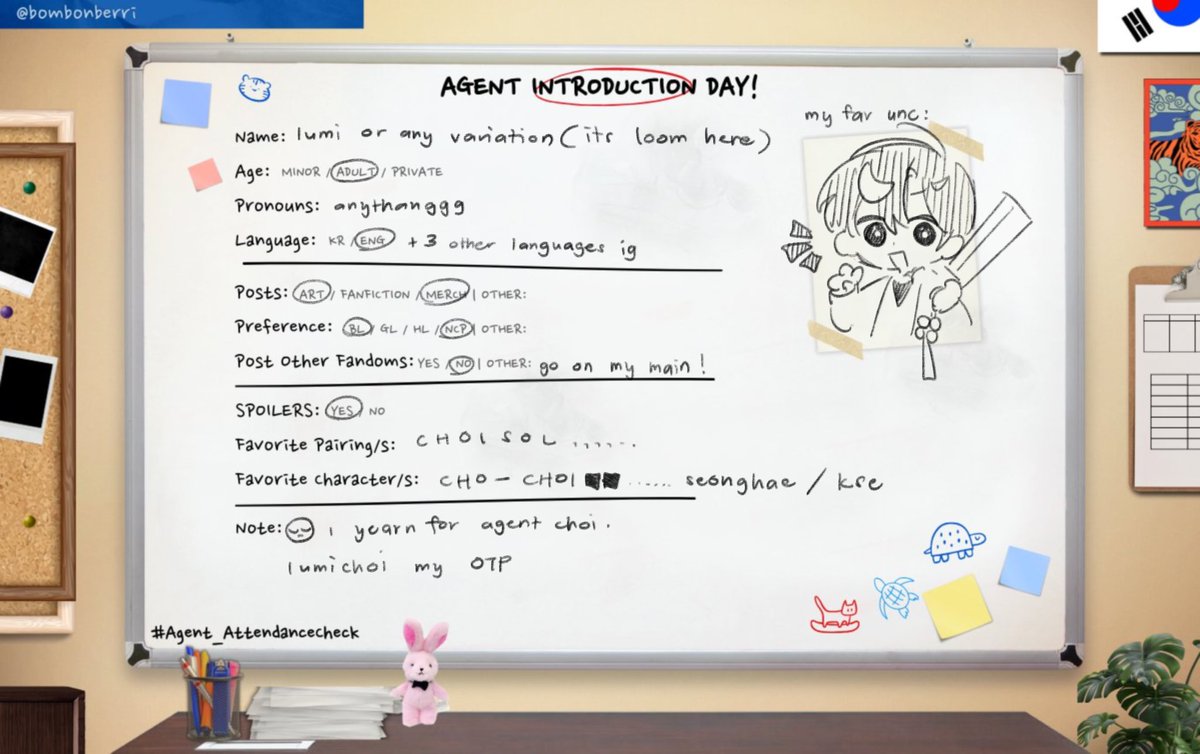 @bombonberri
AGENT INTRODUCTION DAY!
my fav unc:
Name: lumi or any variation (its loom here)
Age: MINOR / ADULT / PRIVATE
Pronouns: anythanggg
Language: KR / ENG + 3 other languages ig
Posts: ART / FANFICTION / MERCH | OTHER:
Preference: BL / GL / HL / NCP | OTHER:
Post Other Fandoms: YES / NO | OTHER: go on my main!
SPOILERS: YES / NO
Favorite Pairing/s: CHOISOL ,,,,,..
Favorite character/s: CHO - CHOI ...... seonghae / kse
Note: i yearn for agent choi.
lumichoi my OTP
#Agent_Attendancecheck